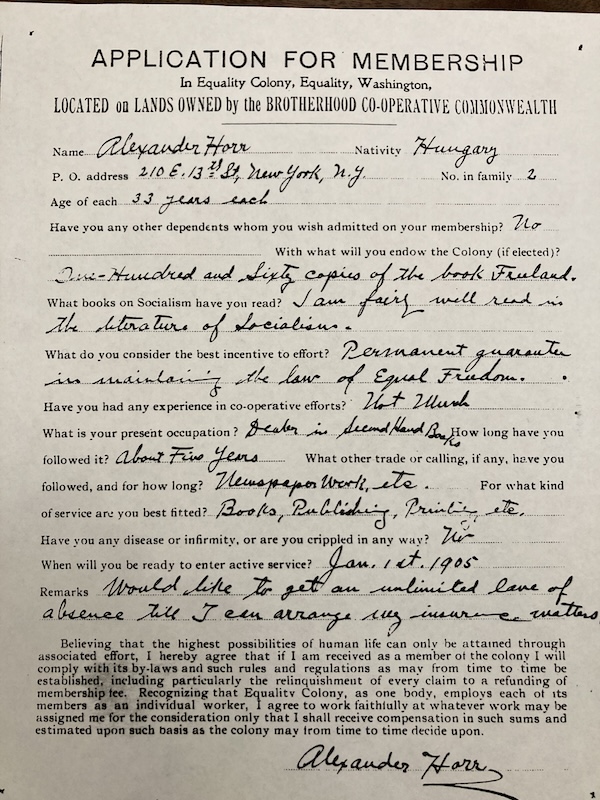 APPLICATION FOR MEMBERSHIP
In Equality Colony, Equality, Washington,
LOCATED on LANDS OWNED by the BROTHERHOOD CO-OPERATIVE COMMONWEALTH
Name Alexander Horr Nativity Hungary
P. O. address 210 E. 13th St, New York, N.Y. No. in family 2
Age of each 33 years each
Have you any other dependents whom you wish admitted on your membership? No
With what will you endow the Colony (if elected)?
One-Hundred and Sixty copies of the book Freeland.
What books on Socialism have you read? I am fairly well read in
the literature of Socialism.
What do you consider the best incentive to effort? Permanent guarantee
in maintaining the law of Equal Freedom.
Have you had any experience in co-operative efforts? Not Much
What is your present occupation? Dealer in Second Hand Books How long have you
followed it? About Five Years What other trade or calling, if any, have you
followed, and for how long? Newspaper Work, etc. For what kind
of service are you best fitted? Books, Publishing, Printing, etc.
Have you any disease or infirmity, or are you crippled in any way? No
When will you be ready to enter active service? Jan. 1st. 1905
Remarks Would like to get an unlimited leave of
absence till I can arrange my insurance matters
Believing that the highest possibilities of human life can only be attained through
associated effort, I hereby agree that if I am received as a member of the colony I will
comply with its by-laws and such rules and regulations as may from time to time be
established, including particularly the relinquishment of every claim to a refunding of
membership fee. Recognizing that Equality Colony, as one body, employs each of its
members as an individual worker, I agree to work faithfully at whatever work may be
assigned me for the consideration only that I shall receive compensation in such sums and
estimated upon such basis as the colony may from time to time decide upon.
Alexander Horr